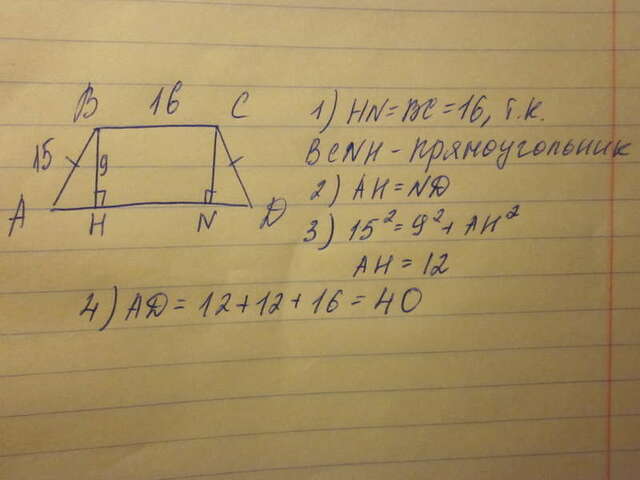 B 16 C
15 9
A H N D
1) HN = BC = 16, т.к.
BCNH - прямоугольник
2) AH = ND
3) 15² = 9² + AH²
AH = 12
4) AD = 12 + 12 + 16 = 40